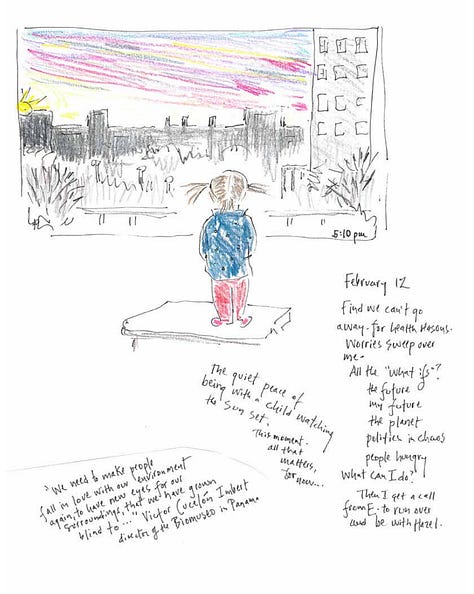 5:10 pm
February 12
Find we can't go
away - for health reasons.
Worries sweep over
me -
All the "what ifs"?
the future
my future
the planet
politics in chaos
people hungry
What can I do?
Then I get a call
from E - to run over
and be with Hazel.
The quiet peace of
being with a child watching
the sun set.
This moment -
all that
matters,
for now...
"We need to make people
fall in love with our environment
again, to have new eyes for our
surroundings, that we have grown
blind to..." Victor Imbert
director of the Biomuseo in Panama